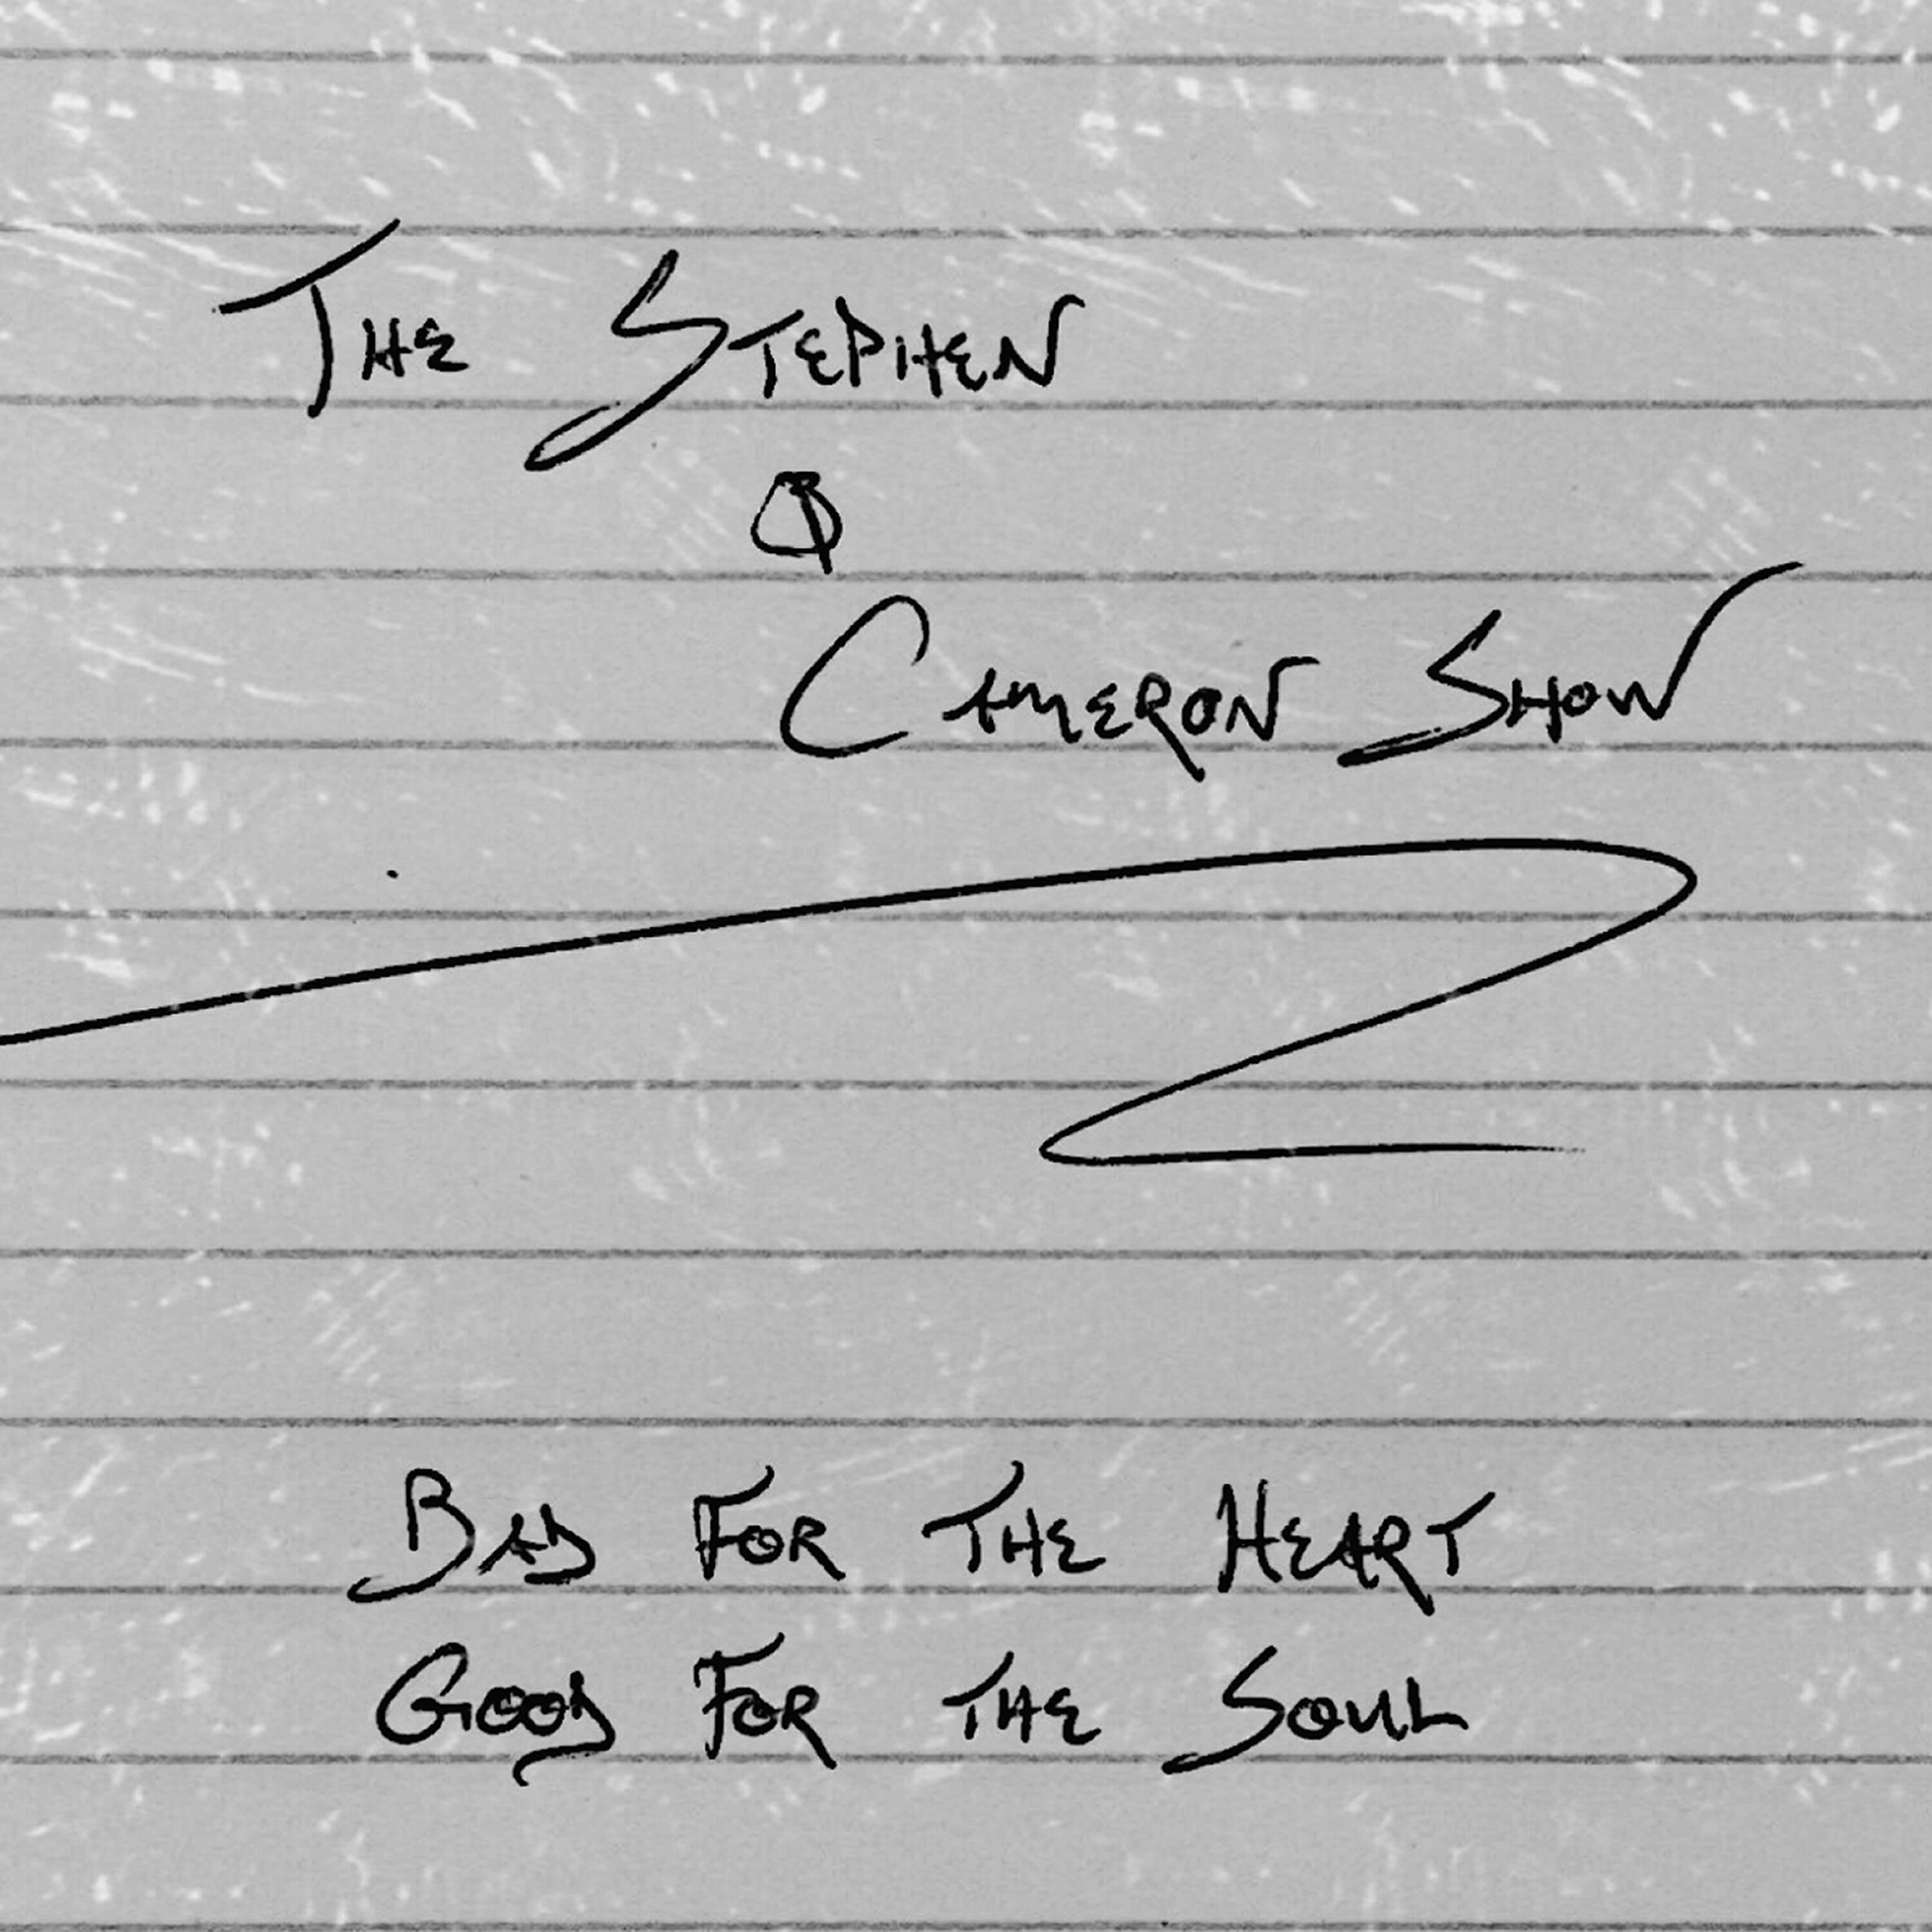 The Stephen
&
Cameron Show
Bad For The Heart
Good For The Soul